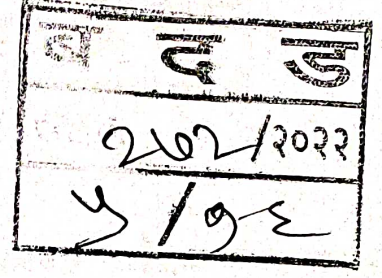 द ड
२७२/२०२२
५/१६